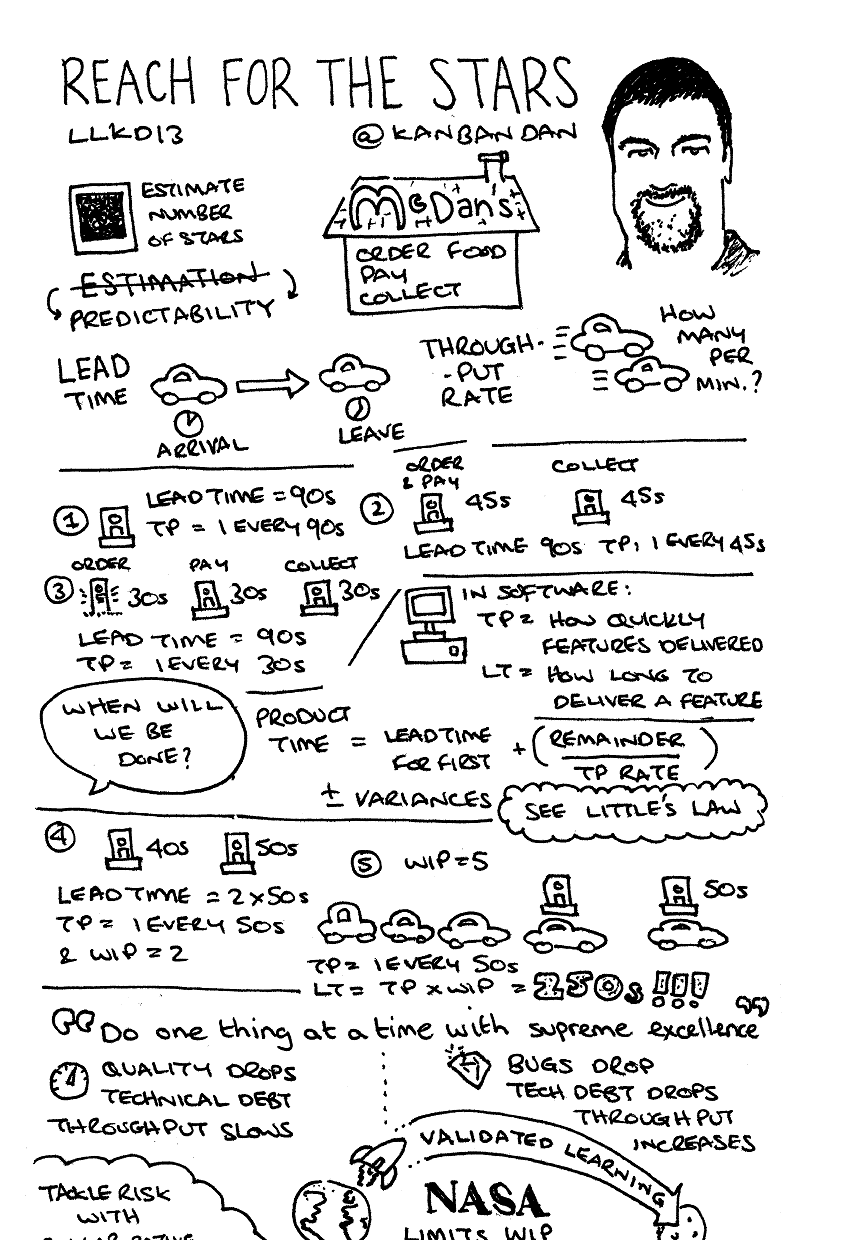 REACH FOR THE STARS
LLKD13
@KANBANDAN
ESTIMATE
NUMBER
OF STARS
McDan's
ORDER FOOD
PAY
COLLECT
ESTIMATION
PREDICTABILITY
LEAD
TIME
ARRIVAL
LEAVE
THROUGH-
-PUT
RATE
HOW
MANY
PER
MIN.?
1
LEAD TIME = 90s
TP = 1 EVERY 90s
2
ORDER
& PAY
45s
COLLECT
45s
LEAD TIME 90s TP, 1 EVERY 45s
3
ORDER
30s
PAY
30s
COLLECT
30s
LEAD TIME = 90s
TP = 1 EVERY 30s
IN SOFTWARE:
TP = HOW QUICKLY
FEATURES DELIVERED
LT = HOW LONG TO
DELIVER A FEATURE
WHEN WILL
WE BE
DONE?
PRODUCT
TIME = LEAD TIME
FOR FIRST
+ (REMAINDER)
TP RATE
± VARIANCES
SEE LITTLE'S LAW
4
40s
50s
LEAD TIME = 2 x 50s
TP = 1 EVERY 50s
& WIP = 2
5
WIP = 5
50s
TP = 1 EVERY 50s
LT = TP x WIP = 250s !!!
"Do one thing at a time with supreme excellence"
QUALITY DROPS
TECHNICAL DEBT
THROUGHPUT SLOWS
BUGS DROP
TECH DEBT DROPS
THROUGHPUT
INCREASES
VALIDATED LEARNING
TACKLE RISK
WITH
NASA
LIMITS WIP